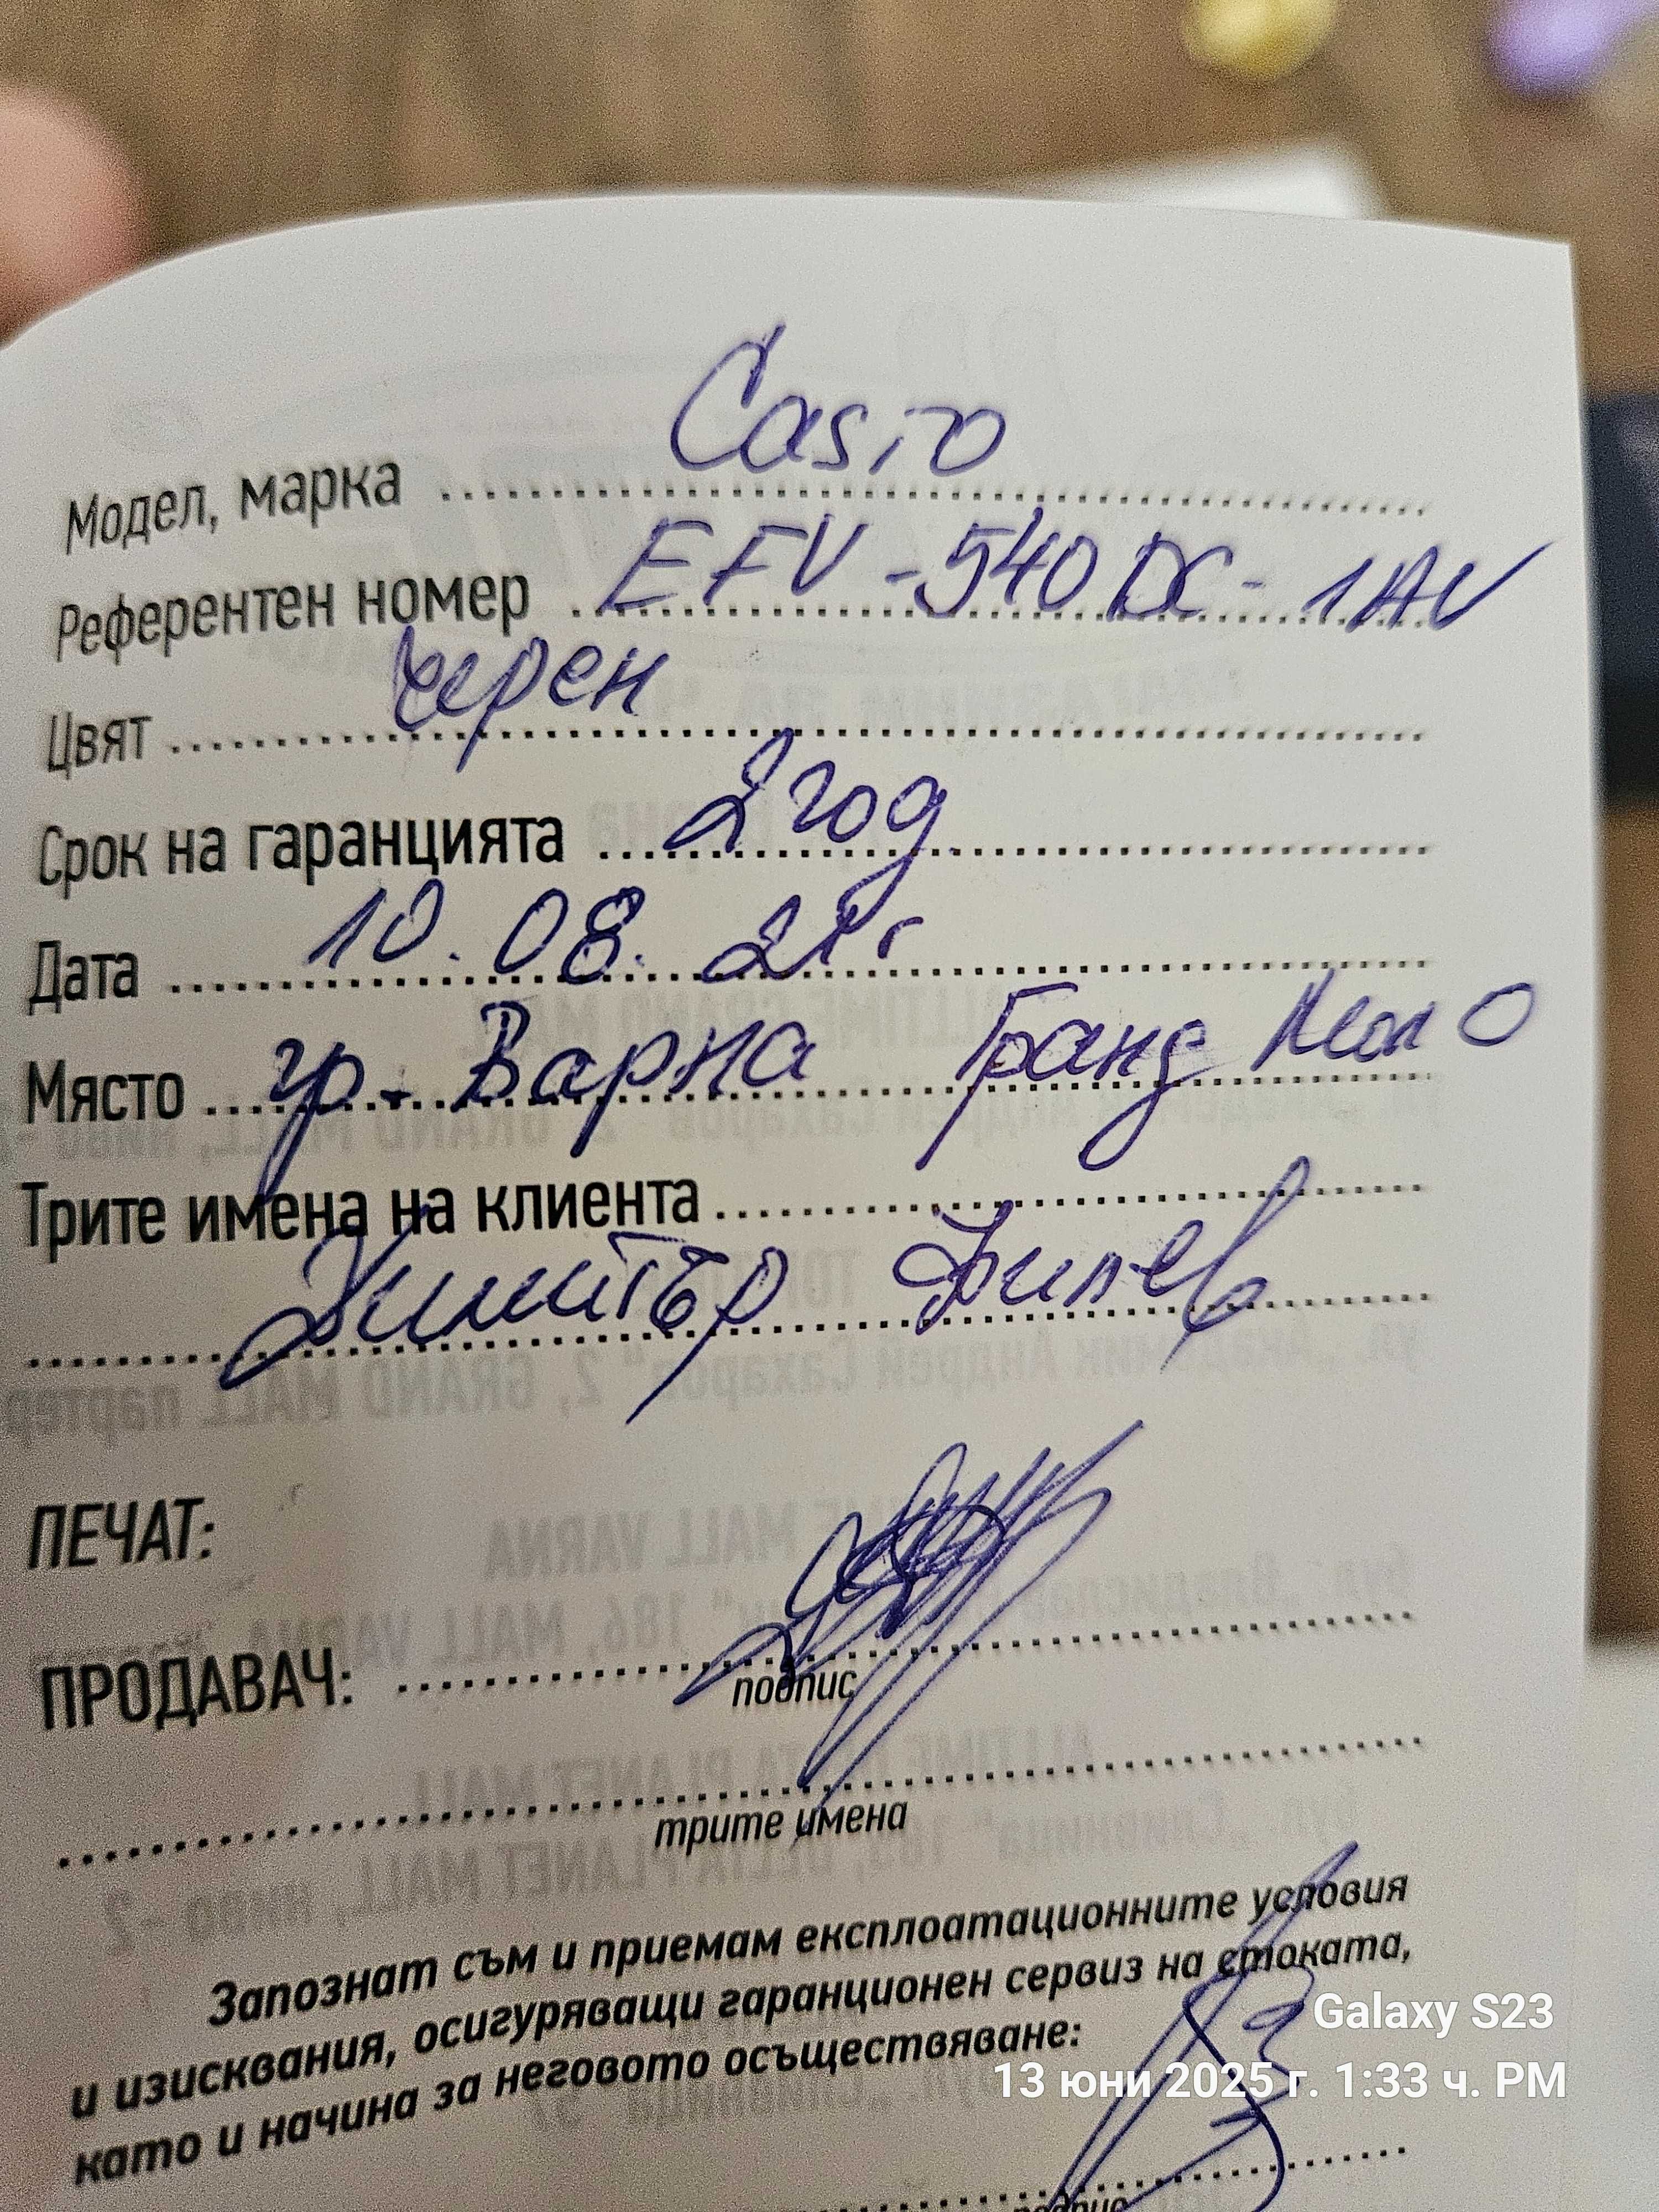 Модел, марка Casio
Референтен номер EFV-540DC-1AV
Цвят черен
Срок на гаранцията 2 год
Дата 10.08.21г
Място гр. Варна Гранд Мол
Трите имена на клиента
Димитър Филев
ПЕЧАТ:
ПРОДАВАЧ:
подпис
трите имена
Запознат съм и приемам експлоатационните условия
и изисквания, осигуряващи гаранционен сервиз на стоката,
както и начина за неговото осъществяване:
подпис
Galaxy S23
13 юни 2025 г. 1:33 ч. PM